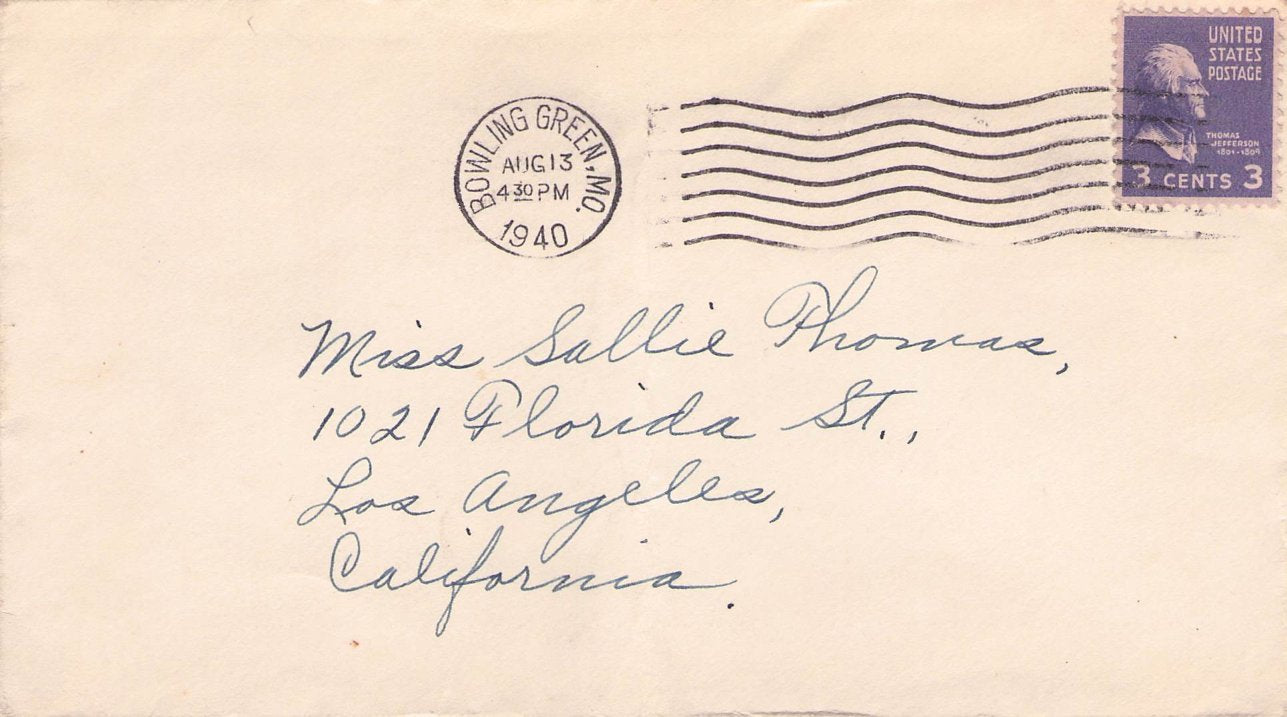 UNITED
STATES
POSTAGE
THOMAS
JEFFERSON
1801-1809
3 CENTS 3
BOWLING GREEN, MO.
AUG 13
4 30 PM
1940
Miss Sallie Thomas,
1021 Florida St.,
Los Angeles,
California.